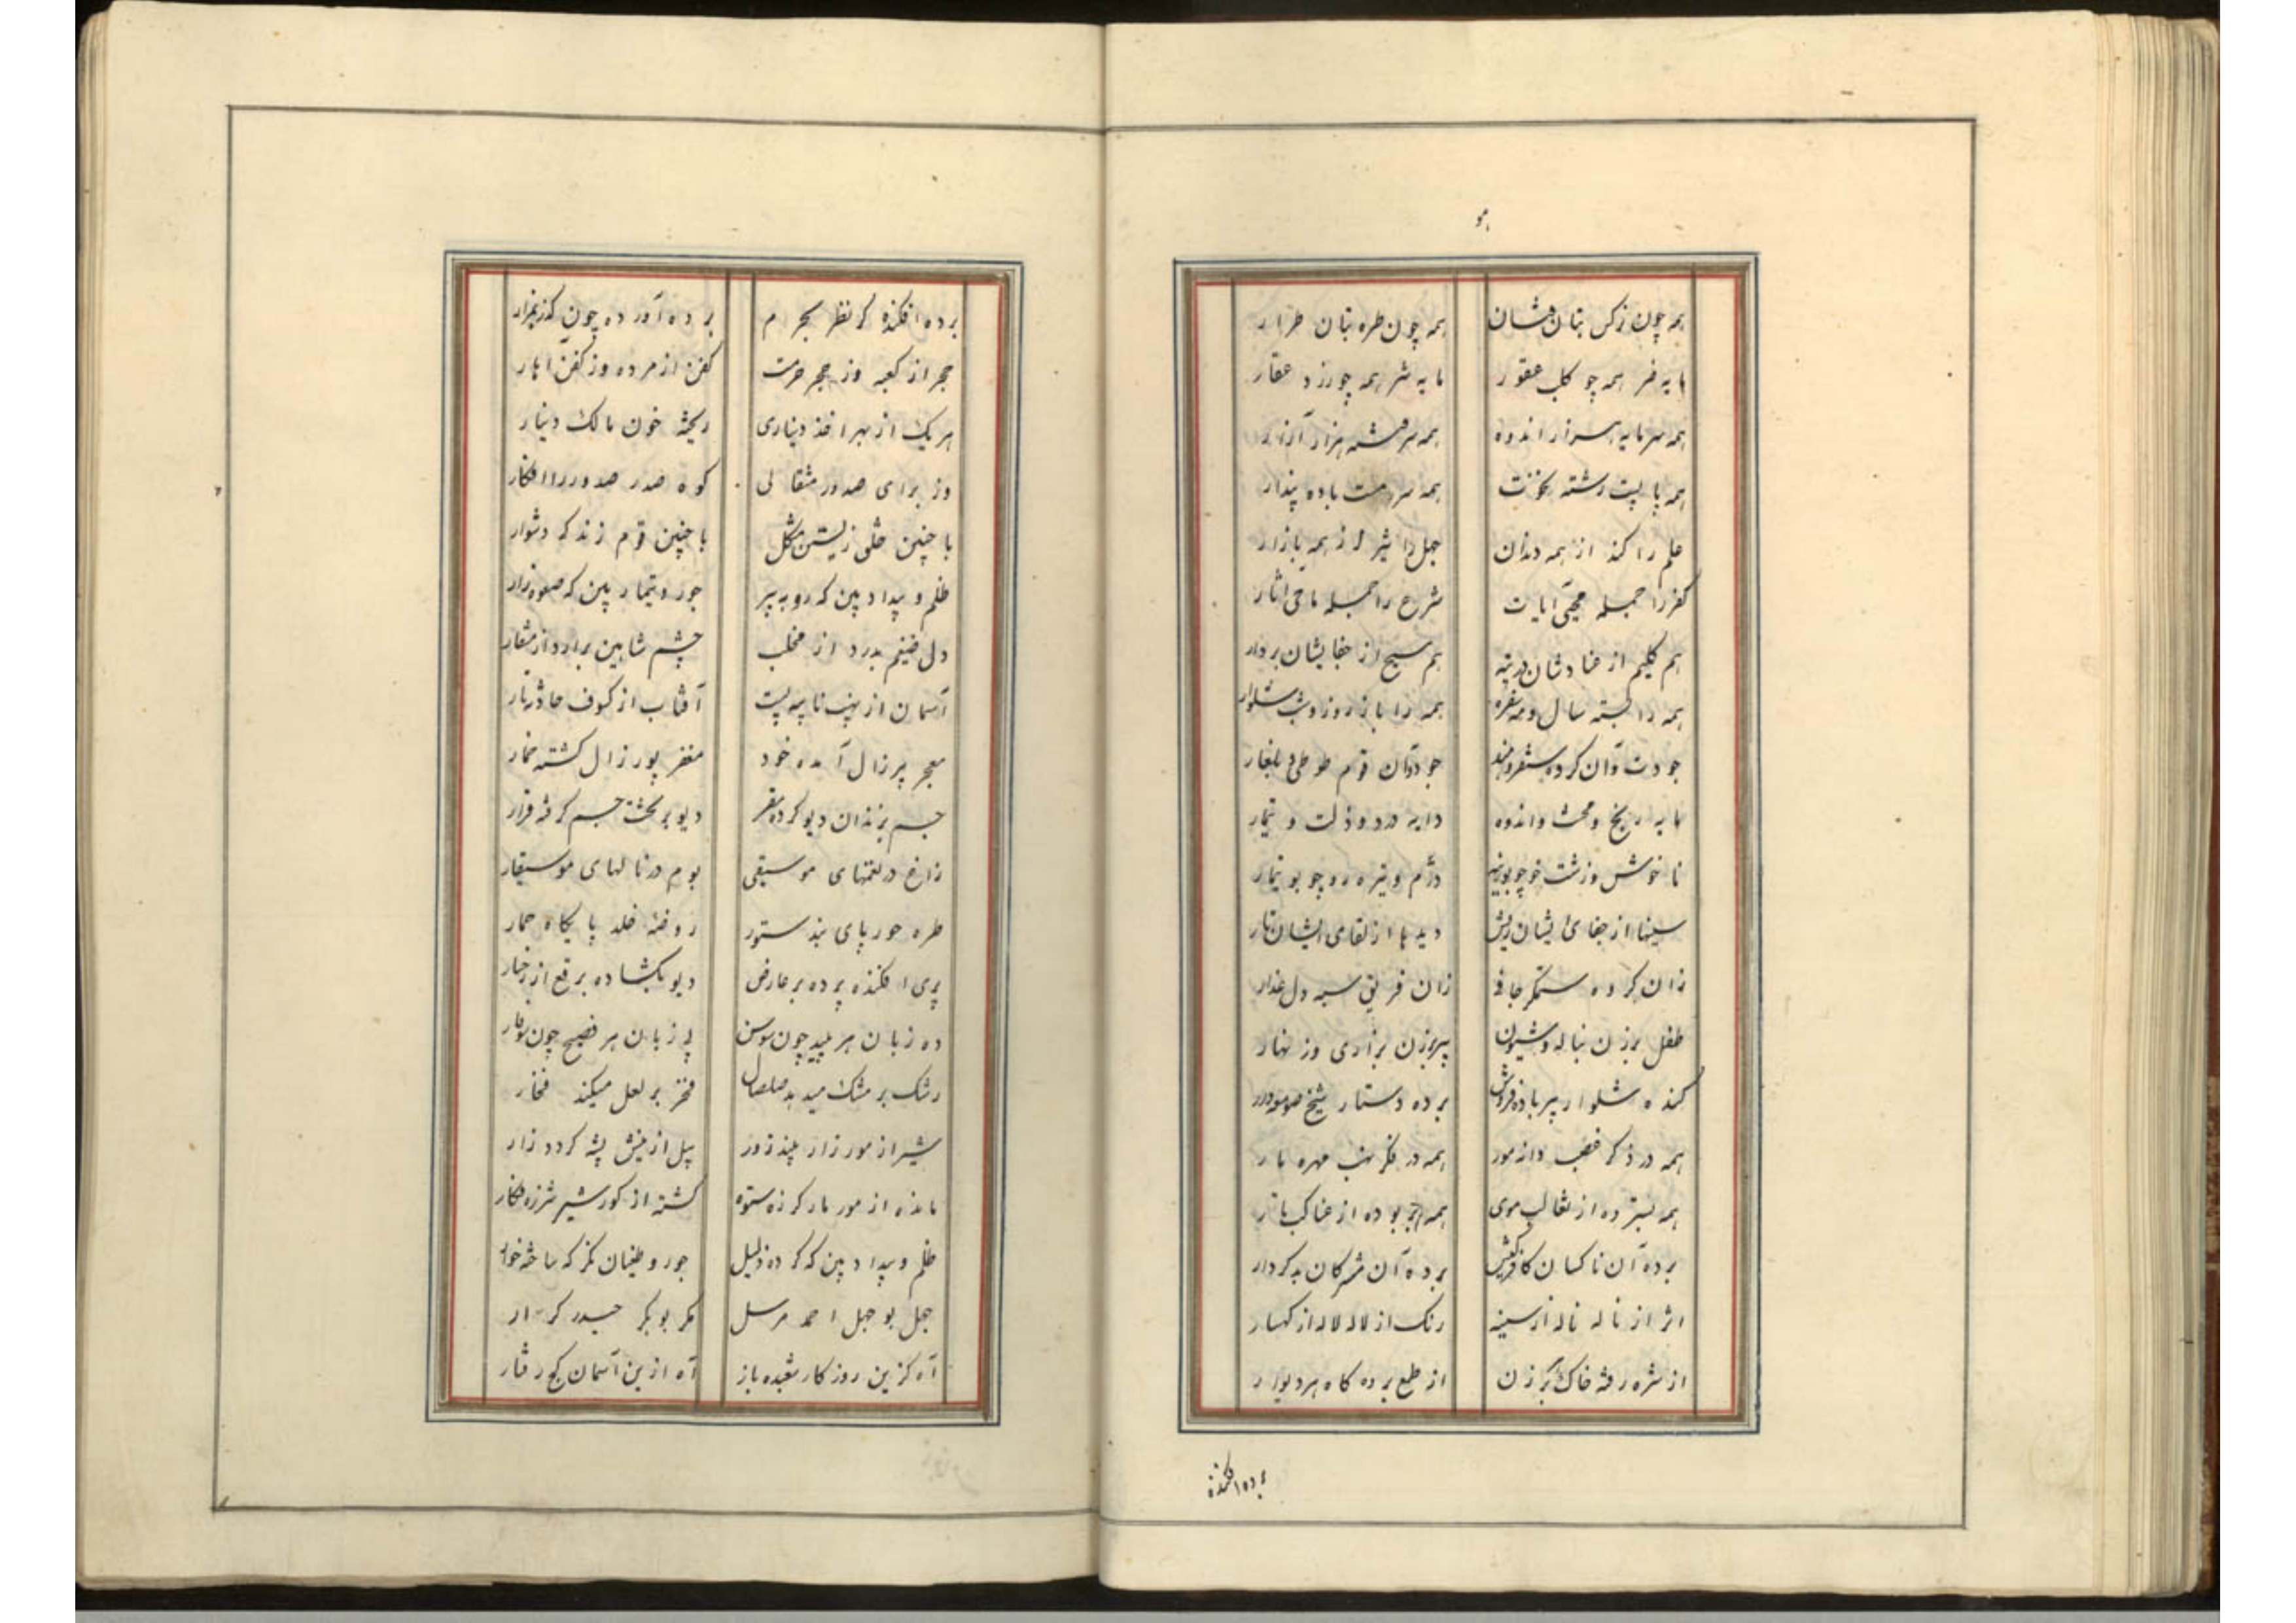 همه چون نرکس بتان فتان همه چون طره بتان طرار
مایه ضر همه چو کلب عقور مایه شر همه چو رزد عقار
همه سرمایه هزار اندوه همه سر هزار آزار
همه پا بست رشته نخوت همه سرمست باده پندار
علم را کند از همه دندان جهل را تیز از همه بازار
کفر را جمله محیی آیات شرع را جمله ماحی اثار
هم کلیم از عنادشان در تیه هم مسیح از جفایشان بر دار
همه را بسته سال و مه سفره همه را باز روز و شب شلوار
جودت آن کرده قوم
مایه رنج و محنت و اندوه دایه درد و ذلت و تیمار
ناخوش و زشت خو چو بوزینه دژم و تیره رو چو بوتیمار
سینها از جفای ایشان ریش دیدها از لقای ایشان تار
زان کروه ستمکر جافی زان فریق سیه دل غدار
طفل برزن بناله و شیون پیرزن بزاری و زنهار
کنده شلوار پیر باده فروش برده دستار شیخ صومعه دار
همه در ذکر غصب دانه مور همه در فکر نهب مهره مار
همه بسترده از ثعالب موی همه بربوده از عناکب تار
برده آن ناکسان کافرکیش برده آن مشرکان بدکردار
اثر از ناله ناله از سینه رنک از لاله لاله از کهسار
از شره رفته خاک برزن از طمع برده کاه هر دیوار
برده افکنده
برده افکنده کر نظر بحرم برده آورده چون کذر بمزار
حجر از کعبه وز حجر حرمت کفن از مرده وز کفن اهار
هر یک از بهر اخذ دیناری ریخته خون مالک دینار
وز برای صدور مثقالی کوه صدر صدور را افکار
با چنین خلق زیستن مشکل با چنین قوم زندکی دشوار
ظلم و بیداد بین که روبه پیر جور و تیمار بین که صعوه زار
دل ضیغم بدرد از مخلب چشم شاهین برآرد از منقار
آسمان از نهیب پست آفتاب از کسوف حادثه تار
معجر پیرزال آمده خود مغفر پور زال کشته خمار
جم بزندان دیو کرده مقر دیو بر تخت جم کرفته قرار
زاغ در نغمهای موسیقی بوم در نالهای موسیقار
طره حور پای بند ستور روضه خلد پایکاه حمار
پری افکنده پرده بر عارض دیو بکشاده برقع از رخسار
ده زبان هر پلید چون سوسن بی زبان هر فصیح چون سوفار
رشک بر مشک میدهد صلصال فخر بر لعل میکند فخار
شیر از مور زار بیند زور پیل از نیش پشه کردد زار
مانده از مور مار کرزه ستوه کشته از کور شیر شرزه فکار
ظلم و بیداد بین که کرده ذلیل جور و طغیان نکر که ساخته خوار
جهل بوجهل احمد مرسل مکر بوبکر حیدر کرار
آه کزین روزکار شعبده باز آه ازین آسمان کج رفتار